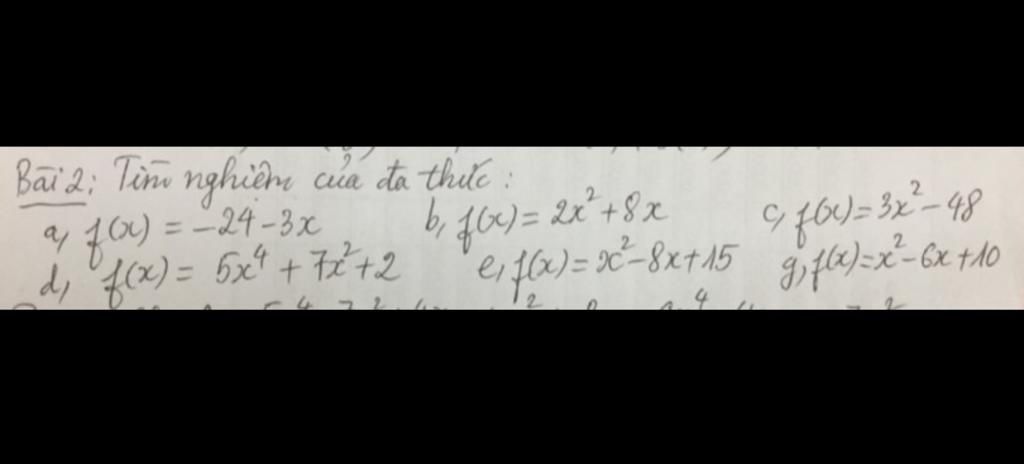 Bài 2: Tìm nghiệm của đa thức:
a, f(x) = -24 - 3x b, f(x) = 2x² + 8x c, f(x) = 3x² - 48
d, f(x) = 5x⁴ + 7x² + 2 e, f(x) = x² - 8x + 15 g, f(x) = x² - 6x + 10